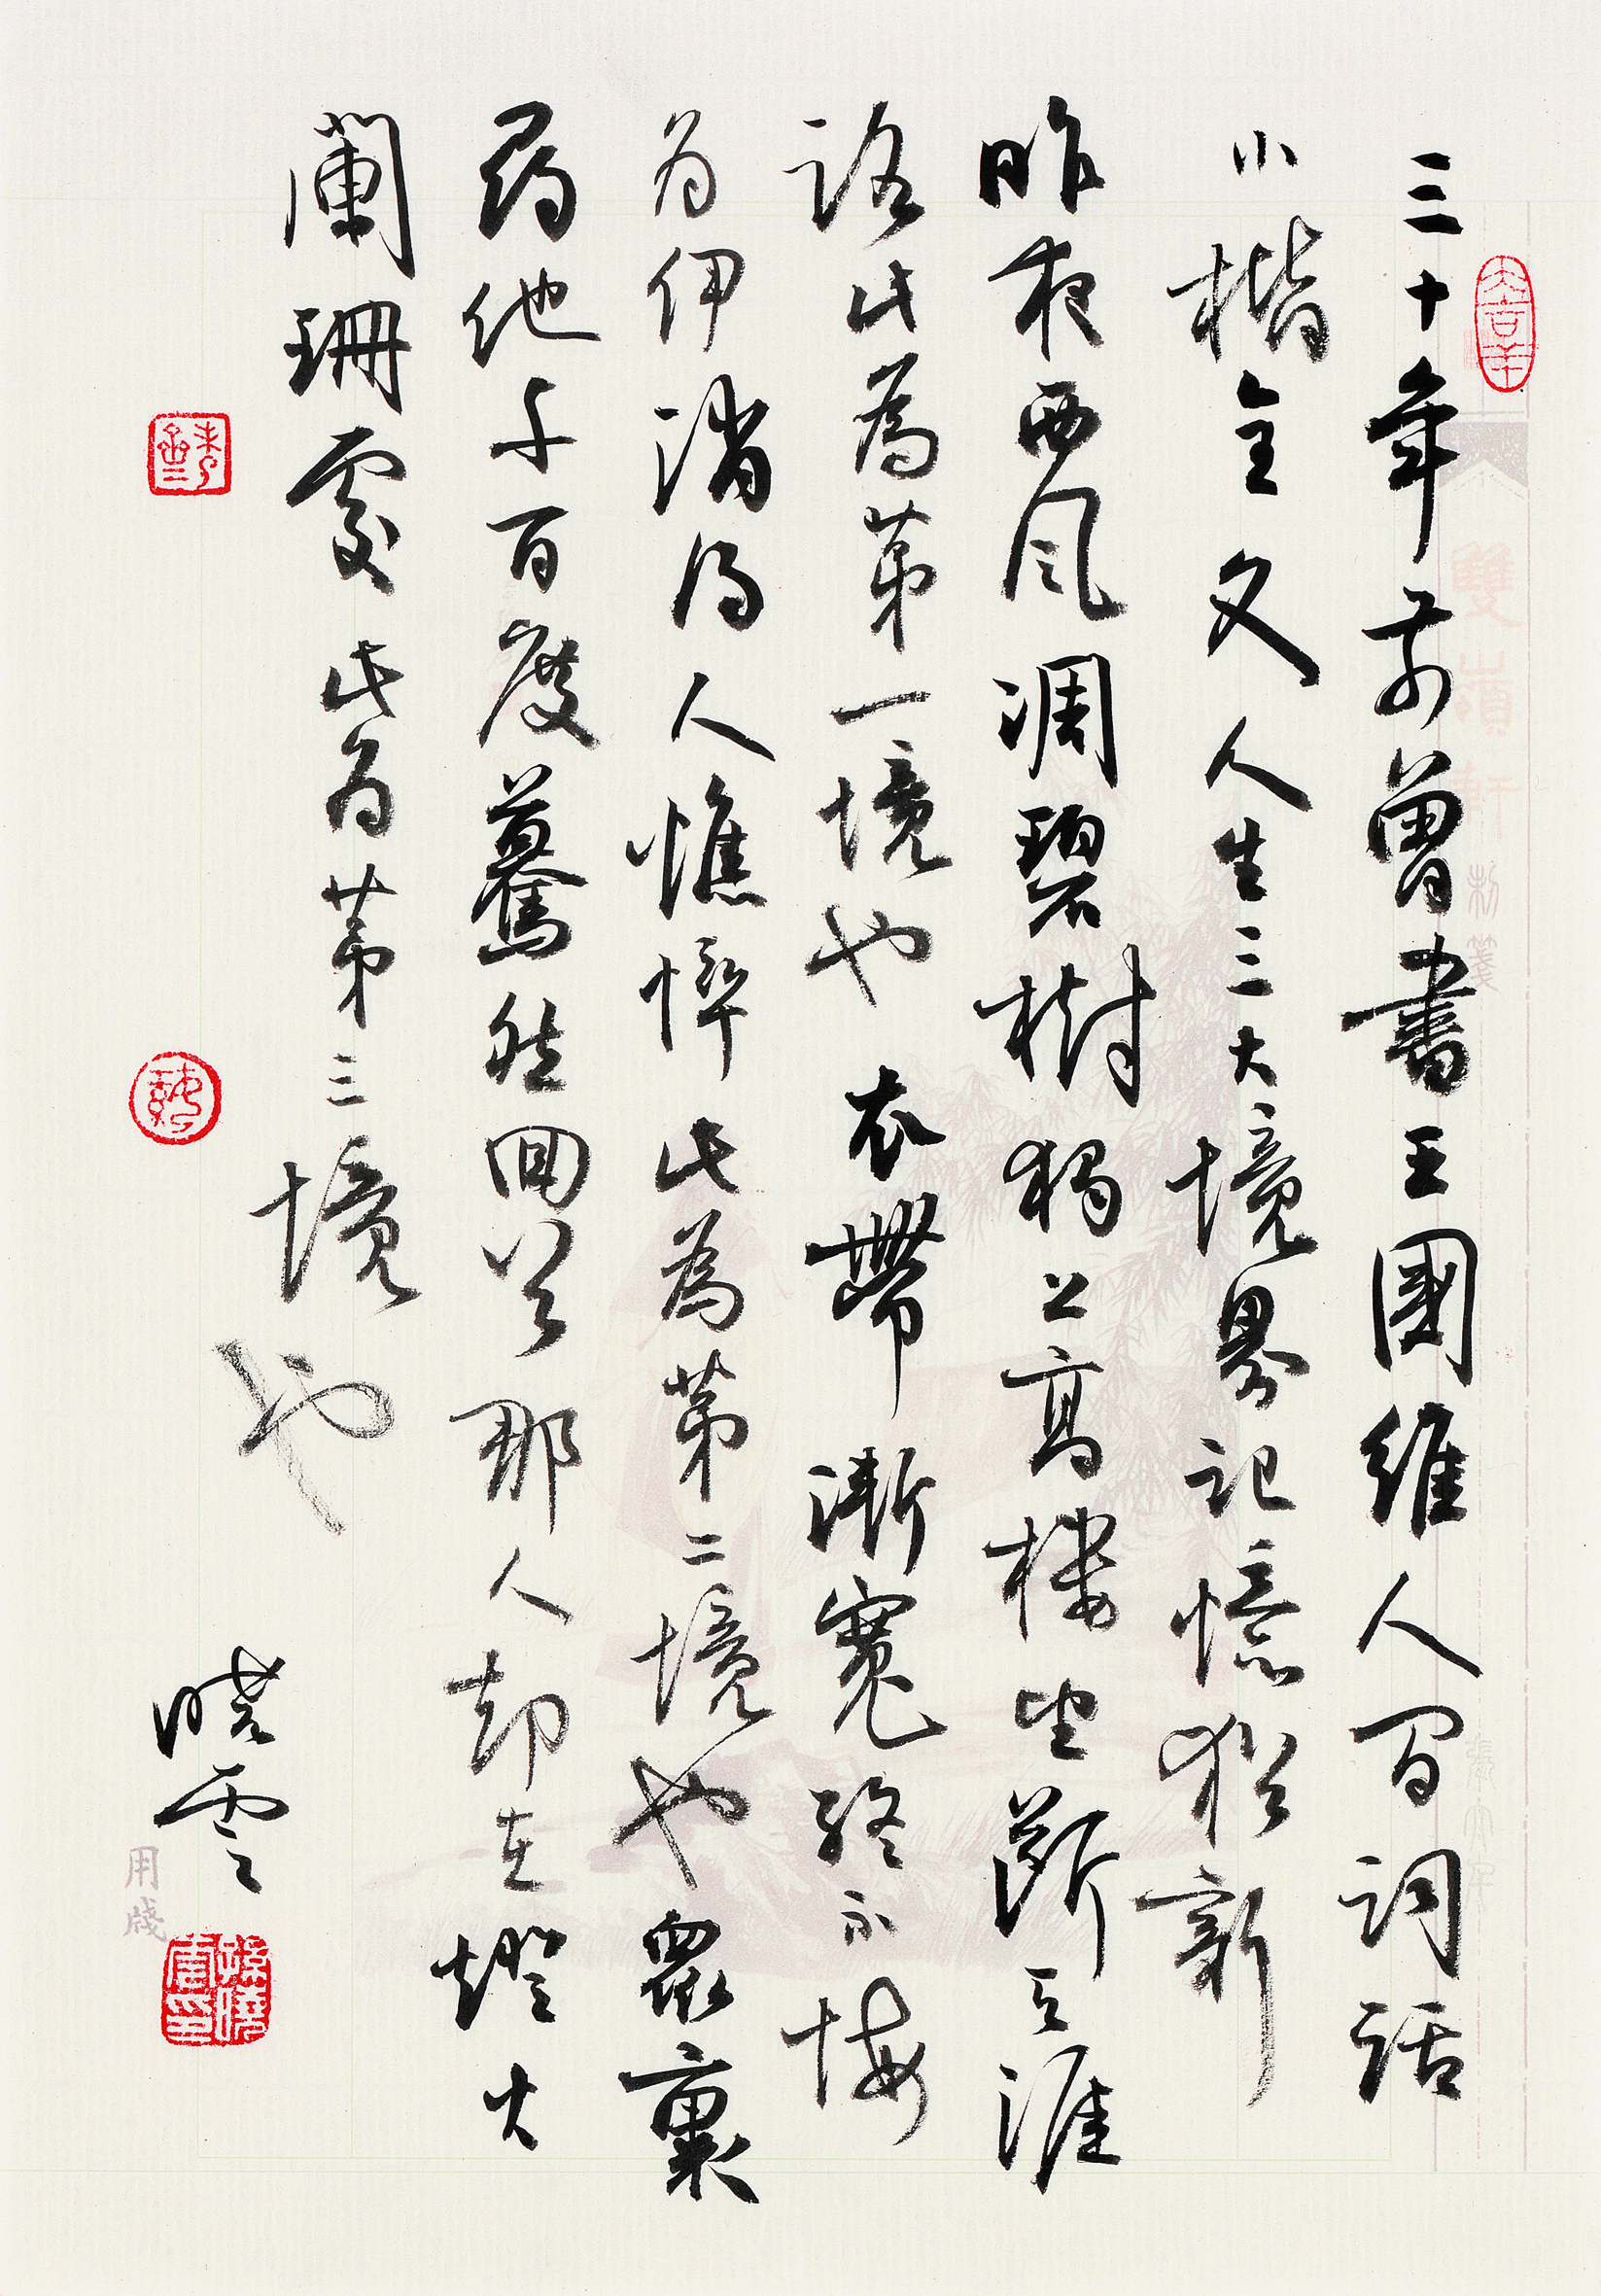 三十年前曾書王國維人間詞話
小楷全文人生三大境界記憶猶新
昨夜西風凋碧樹獨上高樓望斷天涯
路此為第一境也衣帶漸寬終不悔
為伊消得人憔悴此為第二境也眾裏
尋他千百度驀然回首那人却在燈火
闌珊處此為第三境也
曉雲
雙嶺軒制箋
用箋